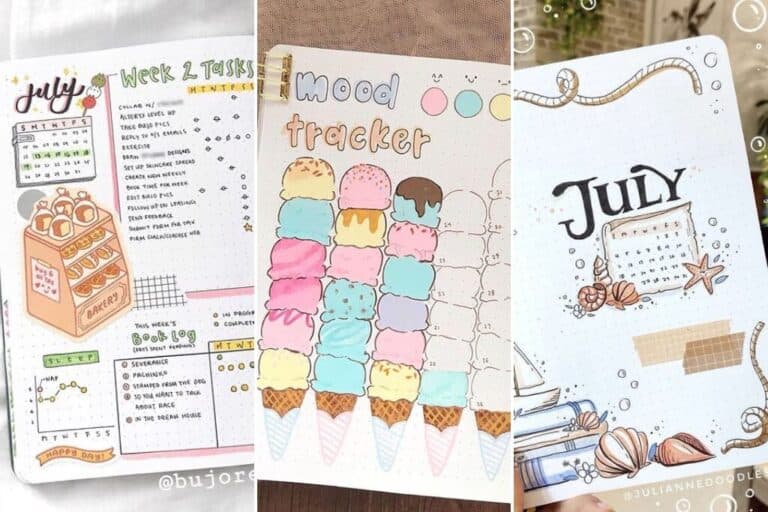 July
S M T W T F S
Week 2 Tasks
M T W T F S S
COLLAB W/
ALTER'S LEVEL UP
TAKE BUJO PICS
REPLY TO P/S EMAILS
EXERCISE
DESIGNS
SET UP SKINCARE SPREAD
CREATE NEW WEEKLY
BOOK TIME FOR WEEK
EDIT BUJO PICS
FOLLOW UP ON LEASING
SEND FEEDBACK
SUBMIT FORM FOR
BAKERY
THIS WEEK'S
Book Log
IN PROGR
COMPLETE
M T W T F
SEVERANCE
PACHINKO
STAMPED FROM THE BEG
SO YOU WANT TO TALK
ABOUT RACE
IN THE DREAM HOUSE
SLEEP
NAP
M T W T F S S
HAPPY DAY!
@bujore
mood
tracker
JULY
@JULIANNEDOODLES